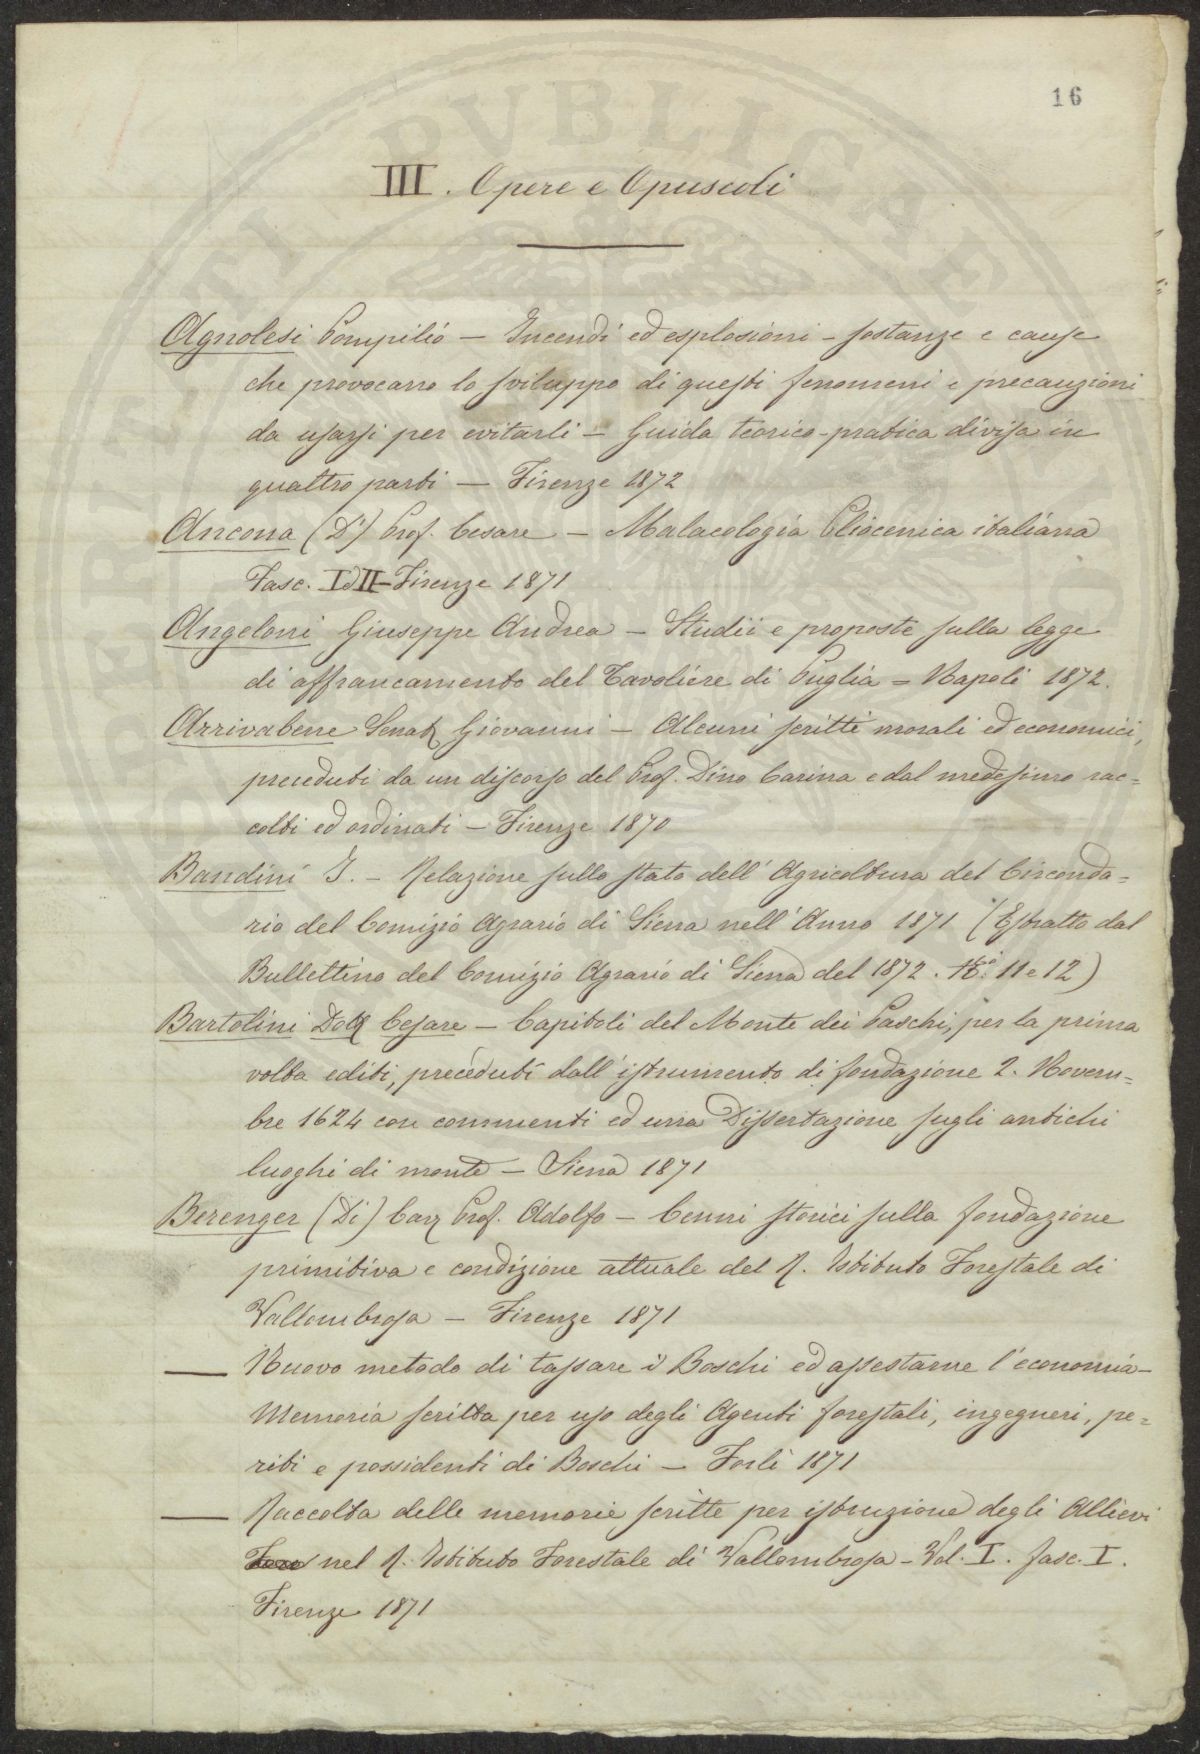 16
III. Opere e Opuscoli
Agnolesi Pompilio – Incendi ed esplosioni – sostanze e cause
che provocano lo sviluppo di questi fenomeni e precauzioni
da usarsi per evitarli – Guida teorico-pratica divisa in
quattro parti – Firenze 1872
Ancona (D') Prof. Cesare – Malacologia Pliocenica italiana
Fasc. I ed II – Firenze 1871
Angeloni Giuseppe Andrea – Studii e proposte sulla legge
di affrancamento del Tavoliere di Puglia – Napoli 1872.
Arrivabene Senat. Giovanni – Alcuni scritti morali ed economici,
preceduti da un discorso del Prof. Dino Carina e dal medesimo rac=
colti ed ordinati – Firenze 1870
Bandini I. – Relazione sullo stato dell'Agricoltura del Circonda=
rio del Comizio Agrario di Siena nell'Anno 1871 (Estratto dal
Bullettino del Comizio Agrario di Siena del 1872. Ni 11 e 12)
Bartolini Dott. Cesare – Capitoli del Monte dei Paschi, per la prima
volta editi, preceduti dall'istrumento di fondazione 2. Novem=
bre 1624 con commenti ed una Dissertazione sugli antichi
luoghi di monte – Siena 1871
Berenger (Di) Cav. Prof. Adolfo – Cenni storici sulla fondazione
primitiva e condizione attuale del R. Istituto Forestale di
Vallombrosa – Firenze 1871
— Nuovo metodo di tassare i Boschi ed assestarne l'economia –
Memoria scritta per uso degli Agenti forestali, ingegneri, pe=
riti e possidenti di Boschi – Forlì 1871
— Raccolta delle memorie scritte per istruzione degli Allievi
nel R. Istituto Forestale di Vallombrosa – Vol. I. fasc. I.
Firenze 1871